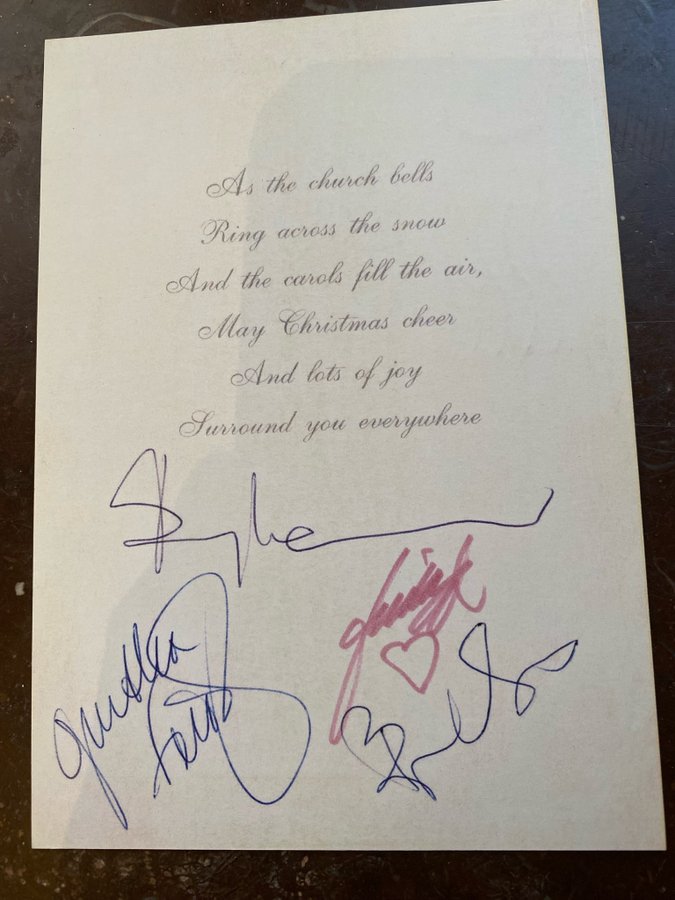 As the church bells
Ring across the snow
And the carols fill the air,
May Christmas cheer
And lots of joy
Surround you everywhere